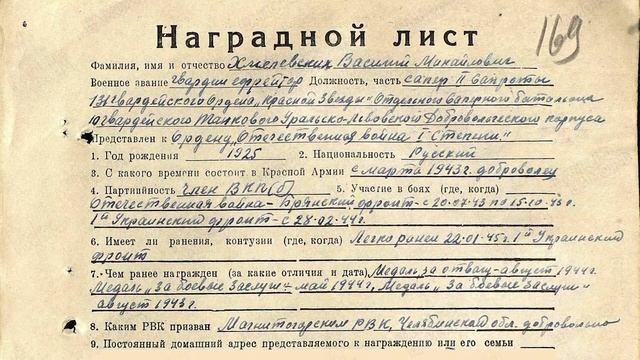 169
Наградной лист
Фамилия, имя и отчество Хмелевских Василий Михайлович
Военное звание гвардии ефрейтор Должность, часть сапер II сапроты
131 гвардейского Ордена „Красной Звезды" Отдельного саперного батальона
10 гвардейского Танкового Уральско-Львовского Добровольческого корпуса
Представлен к Ордену „Отечественная война I Степени."
1. Год рождения 1925 2. Национальность Русский
3. С какого времени состоит в Красной Армии с марта 1943г. доброволец
4. Партийность член ВКП(б) 5. Участие в боях (где, когда)
Отечественная война - Брянский фронт - с 20.07.43 по 15.10.43 г.
1й Украинский фронт - с 28.02.44г.
6. Имеет ли ранения, контузии (где, когда) Легко ранен 22.01.45г. 1й Украинский
фронт
7. Чем ранее награжден (за какие отличия и дата) Медаль „за отвагу - август 1944г.
Медаль „За боевые заслуги - май 1944г, Медаль „За боевые заслуги"
август 1943г.
8. Каким РВК призван Магнитогорским РВК, Челябинской обл. добровольно
9. Постоянный домашний адрес представляемого к награждению или его семьи